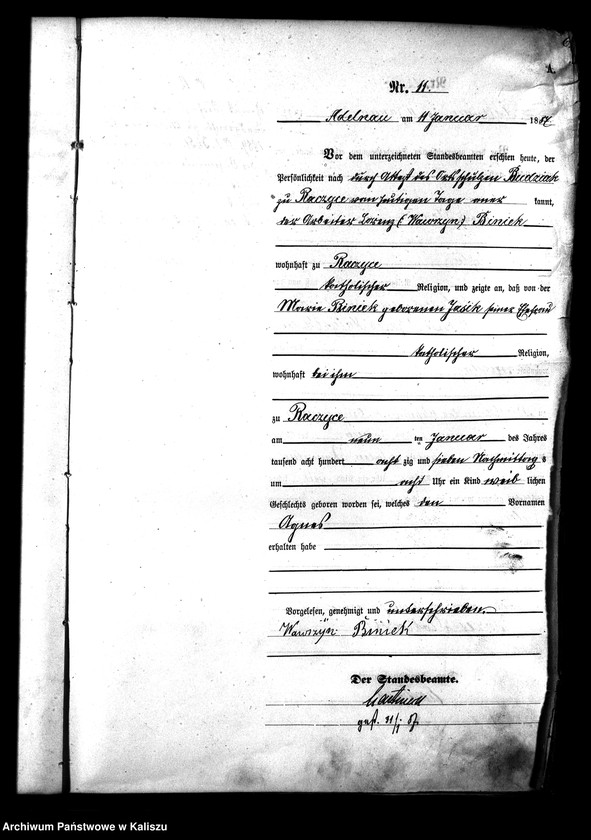 A.
Nr. 11.
Adelnau am 11 Januar 1887
Vor dem unterzeichneten Standesbeamten erschien heute, der
Persönlichkeit nach durch Attest des Ortsschulzen Budziak
zu Raczyce vom heutigen Tage aner kannt,
der Arbeiter Lorenz (Wawrzyn) Biniek
wohnhaft zu Raczyce
katholischer Religion, und zeigte an, daß von der
Marie Biniek geborenen Jasik seiner Ehefrau
katholischer Religion,
wohnhaft bei ihm
zu Raczyce
am neun ten Januar des Jahres
tausend acht hundert acht zig und sieben Nachmittags
um acht Uhr ein Kind weib lichen
Geschlechts geboren worden sei, welches den Vornamen
Agnes
erhalten habe
Vorgelesen, genehmigt und unterschrieben.
Wawrzyn Biniek
Der Standesbeamte.
gest. 11/1 87.
Archiwum Państwowe w Kaliszu